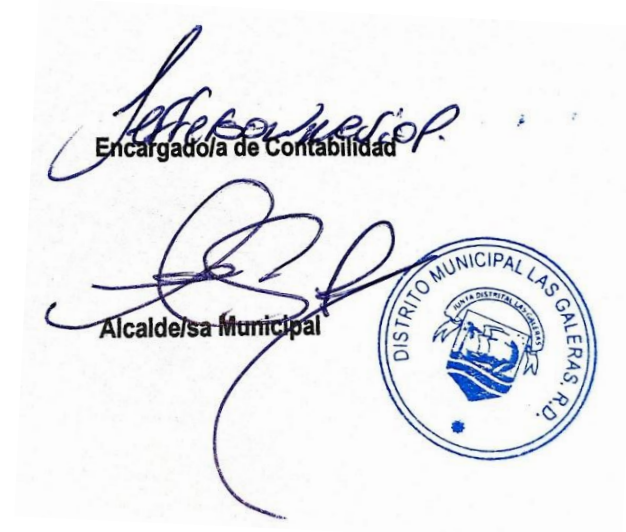 Encargado/a de Contabilidad
Alcalde/sa Municipal
DISTRITO MUNICIPAL LAS GALERAS. R.D.
JUNTA DISTRITAL LAS GALERAS